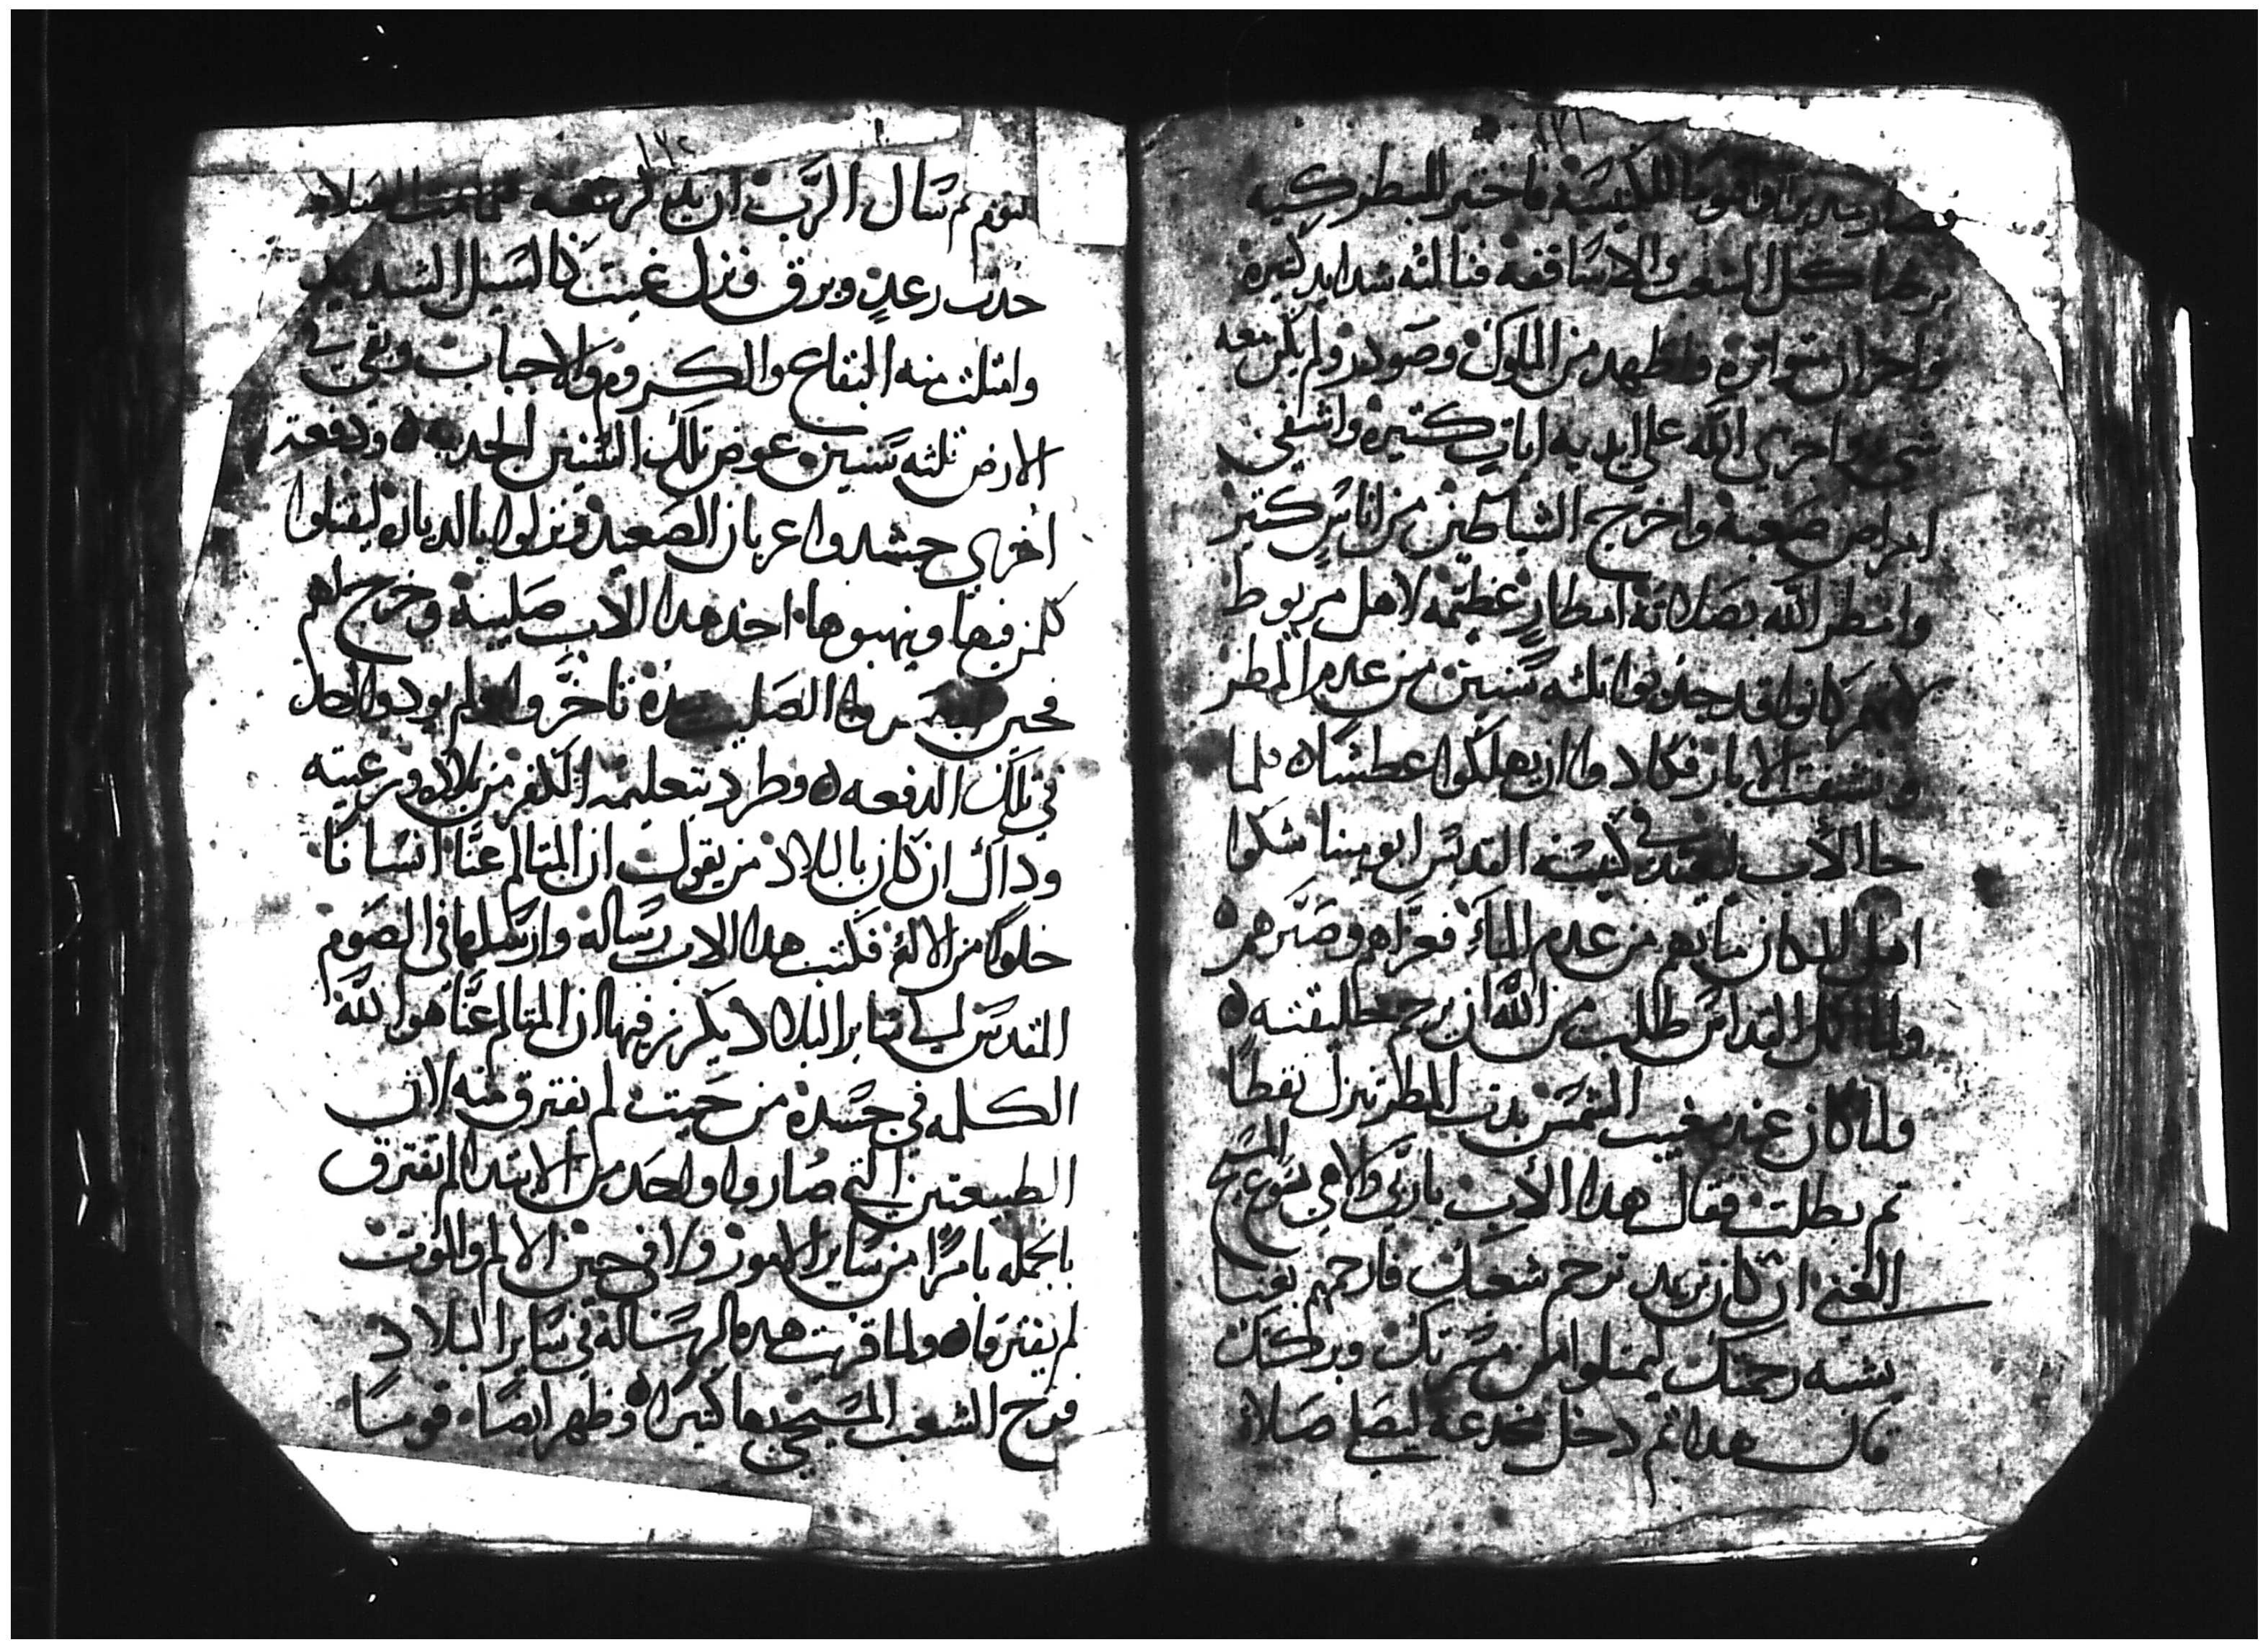 ١٢١
وصار تدبيرا واقنوما للكنيسة فاختير للبطركيه
برضا كل الشعب والاساقفه فنالته شدايد كتيره
واحزان متواتره واضطهد من الملوك وصودر ولم يكن معه
شي واجري الله علي ايديه ايات كتيره واشفي
امراض صعبة واخرج الشياطين من اناس كتير
وامطر الله بصلاته امطار عظيمه لاهل مريوط
لانهم كانوا قد جدبوا تلثه سنين من عدم المطر
ونشفت الابار فكادوا ان يهلكوا عطشا ه فلما
جا الأب في كنيسه القديس ابو مينا شكوا
اهل المكان ما بهم من عدم المآء فعزاهم وصبرهم ه
ولما اكمل القداس طلب من الله ان يرحم خليقته ه
ولما كان عند مغيب الشمس بدت المطر تنزل نقطا
تم بطلت فقال هدا الأب يا ربي والاهي يسوع المسيح
الغني ان كان تريد ترحم شعبك فارحمهم بغنا
يشبه رحمتك ليمتلوا من مسرتك وبركتك
قال هدا تم دخل مخدعه ليصلي صلاة
١٢٢
النوم تم سال الرب ان
حدت رعدٍ وبرق ونزل غيت كالسيل الشديد
وامتلت منه البقاع والكروم والاجباب وبقي في
الارض تلثه سنين عوض تلك السنين الجدبه ه ودفعة
اخري حشدوا عربان الصعيد ونزلوا بالديارة ليقتلوا
كلمن فيها وينهبوها اخد هدا الاب صليبة وخرج لهم
فحين الصليب تاخروا ولم يودوا احد
في تلك الدفعه ه وطرد بتعليمه الكفر من بلاده ورعيته
وداك ان كان بالبلاد من يقول ان المتالم عنّا انسانا
خلوًا من الاله فكتب هدا الاب رساله وارسلها في الصوم
المقدس الي ساير البلاد يكرز فيها ان المتالم عنّا هوا الله
الكلمه في جسده من حيت لم يفترق منه لان
الطبيعتين التي صاروا واحد من الابتدا لم تفترق
بالجمله بامرًا من ساير الامور ولا في حين الالم والموت
لم يفترقا ه ولما قريت هده الرساله في ساير البلاد
فرح الشعب المسيحي بها كتيرا ه وظهر ايضا قومًا